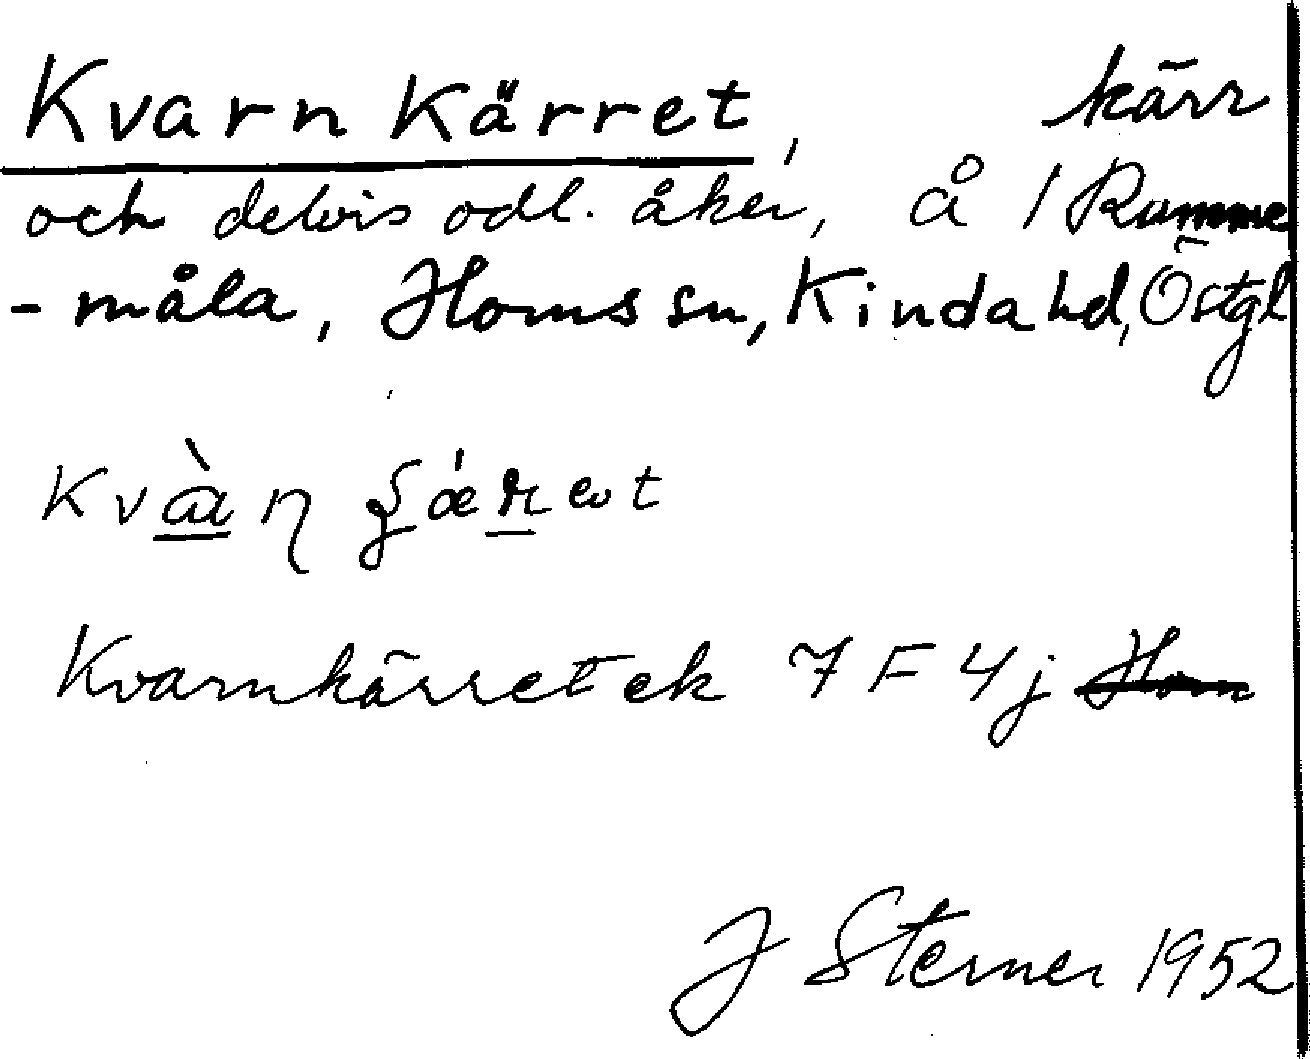 Kvarn Kärret, kärr
och delvis odl. åker, å / Ramme
- måla, Horns sn, Kinda hd, Östgl
Kvarnkärret ek 7 F 4 j Horn
J Sterner 1952